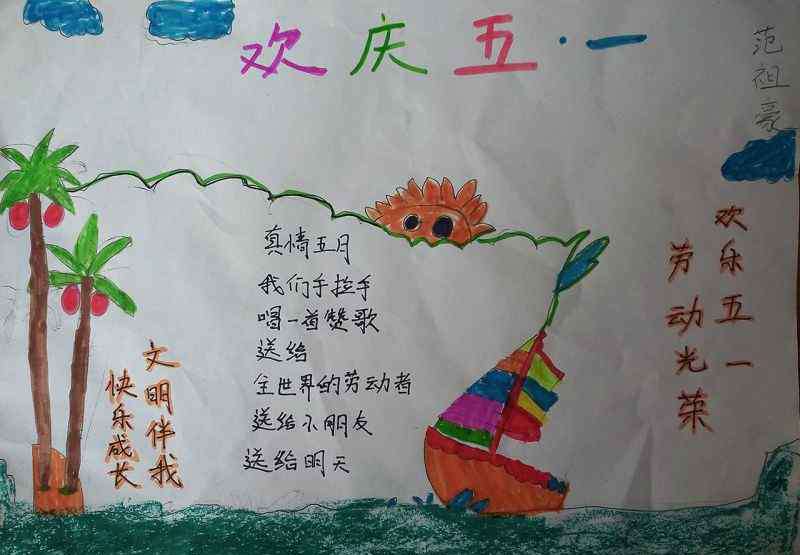 欢庆五·一
范祖豪
真情五月
我们手拉手
唱一首赞歌
送给
全世界的劳动者
送给小朋友
送给明天
文明伴我
快乐成长
欢乐五一
劳动光荣